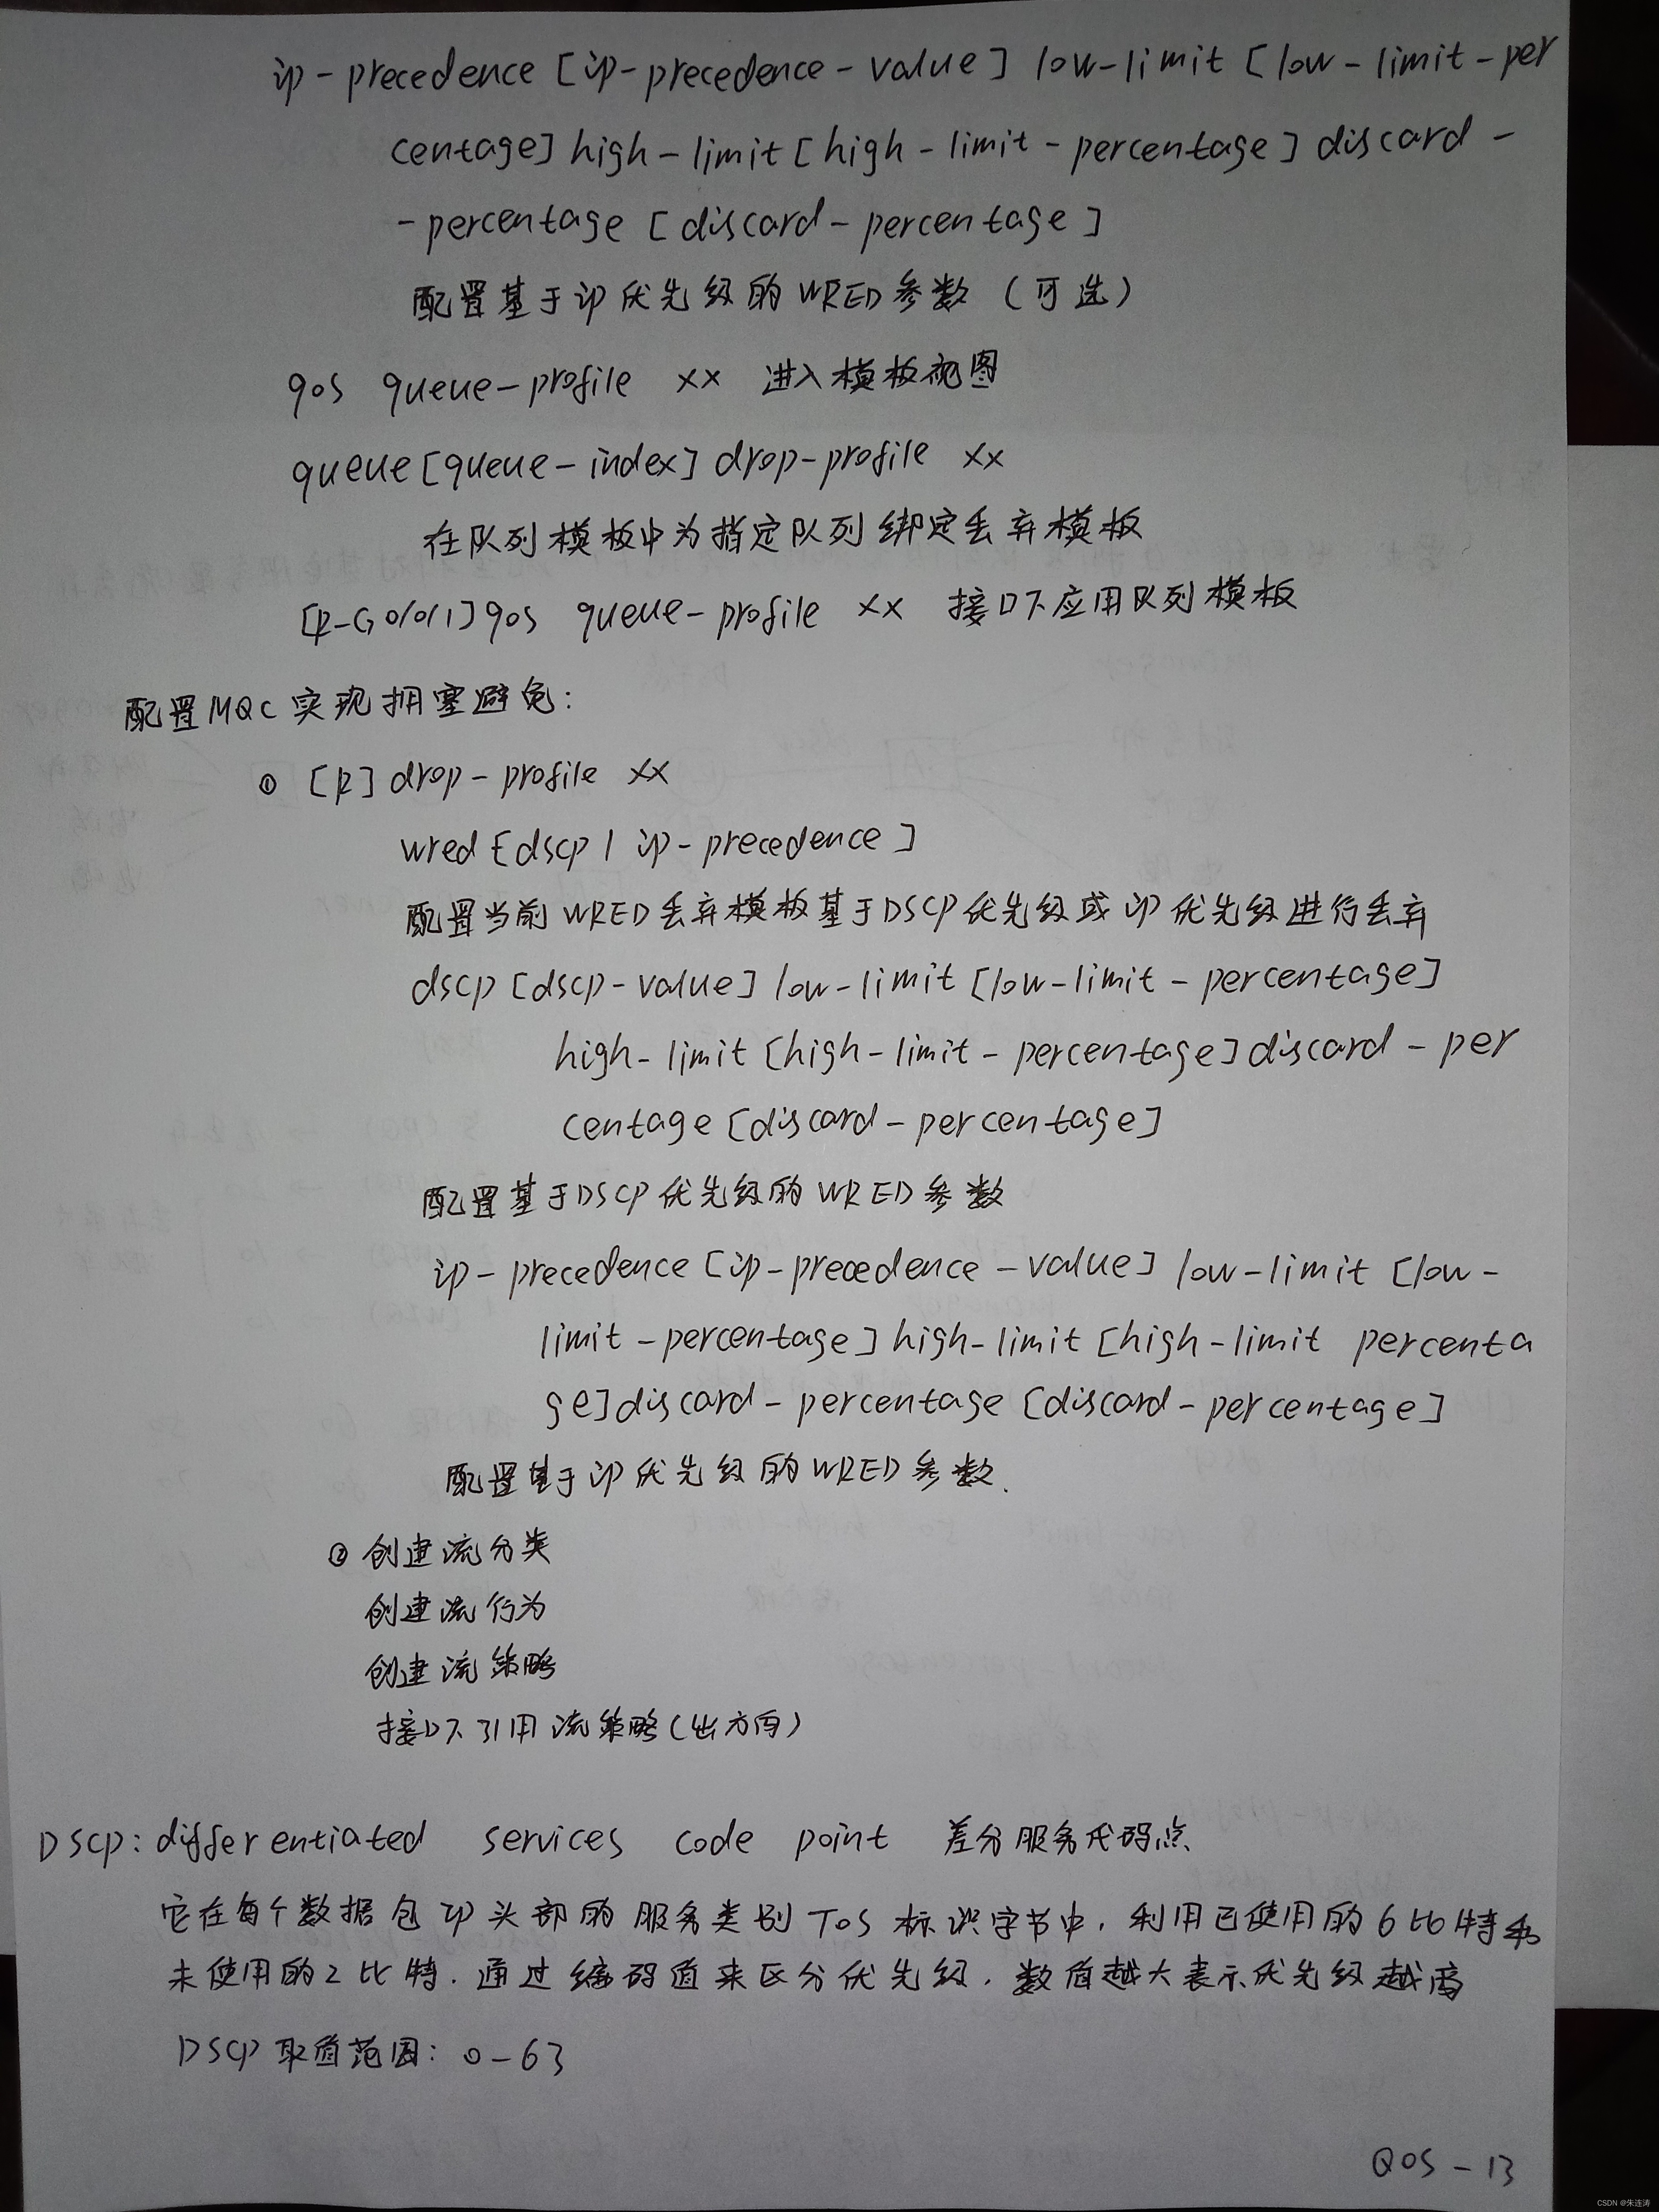 ip-precedence [ip-precedence-value] low-limit [low-limit-per
centage] high-limit [high-limit-percentage] discard-
-percentage [discard-percentage]
配置基于ip优先级的WRED参数（可选）
qos queue-profile xx 进入模板视图
queue [queue-index] drop-profile xx
在队列模板中为指定队列绑定丢弃模板
[R-G0/0/1] qos queue-profile xx 接口下应用队列模板
配置MQC实现拥塞避免：
① [R] drop-profile xx
wred [dscp | ip-precedence]
配置当前WRED丢弃模板基于DSCP优先级或ip优先级进行丢弃
dscp [dscp-value] low-limit [low-limit-percentage]
high-limit [high-limit-percentage] discard-per
centage [discard-percentage]
配置基于DSCP优先级的WRED参数
ip-precedence [ip-precedence-value] low-limit [low-
limit-percentage] high-limit [high-limit percenta
ge] discard-percentage [discard-percentage]
配置基于ip优先级的WRED参数.
② 创建流分类
创建流行为
创建流策略
接口下引用流策略（出方向）
DSCP: differentiated services code point 差分服务代码点
它在每个数据包IP头部的服务类别TOS标识字节中，利用已使用的6比特和
未使用的2比特．通过编码值来区分优先级．数值越大表示优先级越高
DSCP取值范围：0-63
QOS-13
CSDN @朱连涛